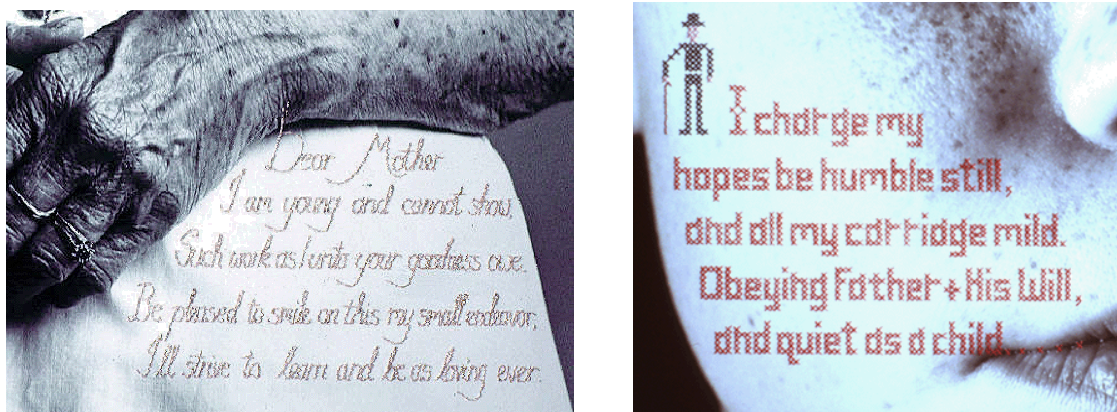 Dear Mother
I am young and cannot show,
Such work as I unto your goodness owe.
Be pleased to smile on this my small endeavor,
I'll strive to learn and be as loving ever.
I charge my
hopes be humble still,
and all my carriage mild.
Obeying Father + His Will,
and quiet as a child.......